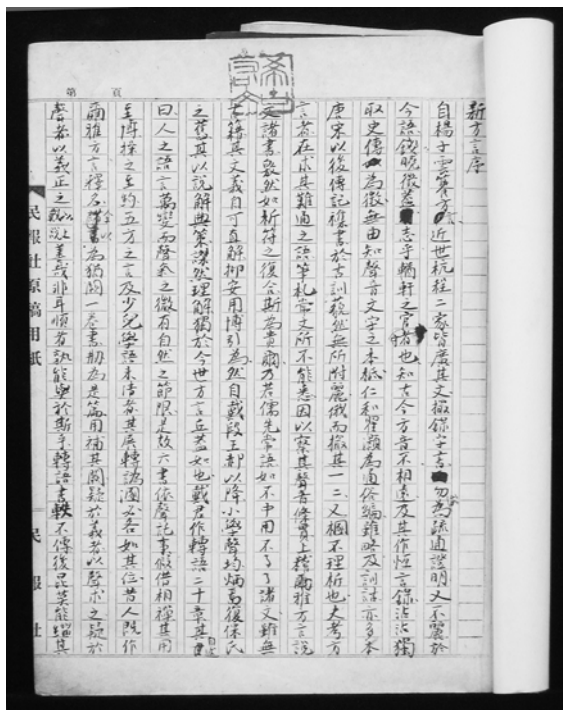 新方言序
自楊子雲纂方言近世杭程二家皆廣其文撮錄字書勿為疏通證明又不麗於
今語錢曉徵蓋志乎輶軒之官者也知古今方音不相遠及其作恒言錄沾沾獨
取史傳為徵無由知聲音文字之本柢仁和翟灝為通俗編雖略及訓詁亦多本
唐宋以後傳記襍書於古訓藐然無所附麗俄而撮其一二又楓不理析也夫考方
言者在求其難通之語筆札常文所不能悉因以察其聲音條貫上稽爾雅方言說
文諸書敫然如析符之復合斯為貴爾乃若儒先常語如不中用不了了諸文雖無
古籍其文義自可直解抑安用博引為然自戴段王郝以降小學聲均炳焉復保氏
之舊其以說解典策潔然理解獨於今世方言丘蓋如也戴君作轉語二十章其自述
曰人之語言萬變而聲氣之微有自然之節限是故六書依聲託事假借相禪其用
至博操之至約五方之言及少兒學語未清者其展轉譌溷必各如其位昔人既作
爾雅方言釋名余以為猶闕一卷書刱為是篇用補其闕疑於義者以聲求之疑於
聲者以義正之美哉非耳順者孰能與於斯乎轉語書軼不傳後昆莫能繼其
第 頁
民報社原稿用紙
民報社